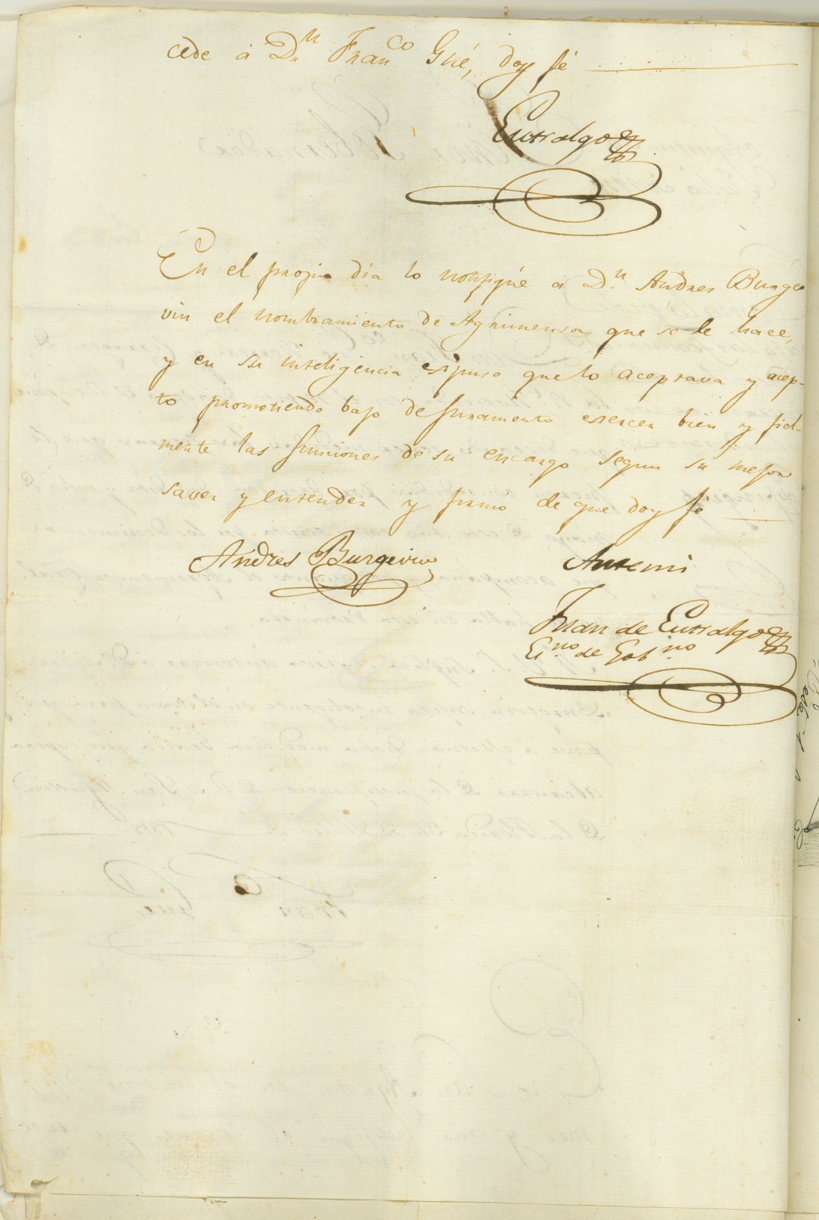 cede á Dn. Franco Gué, doy fé
Entralgo
En el propio dia lo notifiqué a Dn. Andres Burge
vin el nombramiento de Agrimensor que se le hace,
y en su inteligencia espuso que lo aceptava y acep-
tó promotiendo bajo de Juramento exercer bien y fiel-
mente las funciones de su encargo segun su mejor
saver y entender y firmo de que doy fé
Andres Burgevin
Antemi
Juan de Entralgo
Esno. de Gobno